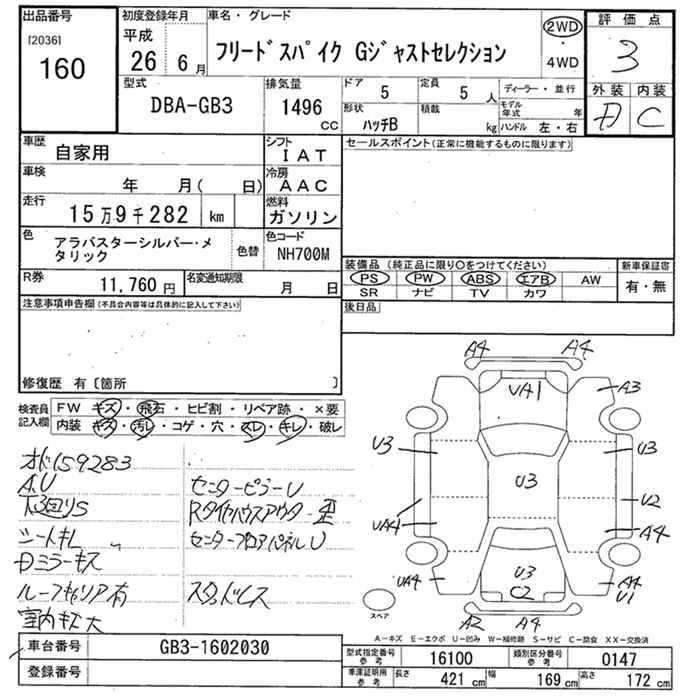 出品番号
[2036]
160
初度登録年月
平成
26 6月
車名・グレード
フリードスパイク Gジャストセレクション
2WD
・
4WD
評価点
3
外装 内装
D C
型式
DBA-GB3
排気量
1496 cc
ドア
5
定員
5 人
ディーラー・並行
形状
ハッチB
積載
kg
モデル年式 年
ハンドル 左・右
車歴
自家用
シフト
IAT
車検
年 月( 日)
冷房
AAC
走行
15万9千282 km
燃料
ガソリン
色
アラバスターシルバー・メタリック
色替
色コード
NH700M
R券
11,760 円
名変通知期限
月 日
セールスポイント(正常に機能するものに限ります)
装備品(純正品に限り○をつけてください)
PS PW ABS エアB AW
SR ナビ TV カワ
新車保証書
有・無
後日品
注意事項申告欄(不具合内容等は具体的に記入して下さい)
修復歴 有〔箇所 〕
検査員記入欄
FW キズ・飛石・ヒビ割・リペア跡・×要
内装 キズ・汚レ・コゲ・穴・スレ・キレ・破レ
159283
A.U
シートキレ
Dミラーキズ
ルーフキャリア有
室内キズ大
センターピラーU
Rタイヤハウスアウター歪
センターフロアパネルU
A4 A4
UA1
A3
U3 U3 U3
U2
UA4 A4
UA4
U3
C2
A4
U1
A2 A4
スペア
A-キズ E-エクボ U-凹み W-補修跡 S-サビ C-腐食 XX-交換済
車台番号
GB3-1602030
登録番号
型式指定番号 参考
16100
類別区分番号 参考
0147
車庫証明用 参考
長さ 421 cm
幅 169 cm
高さ 172 cm